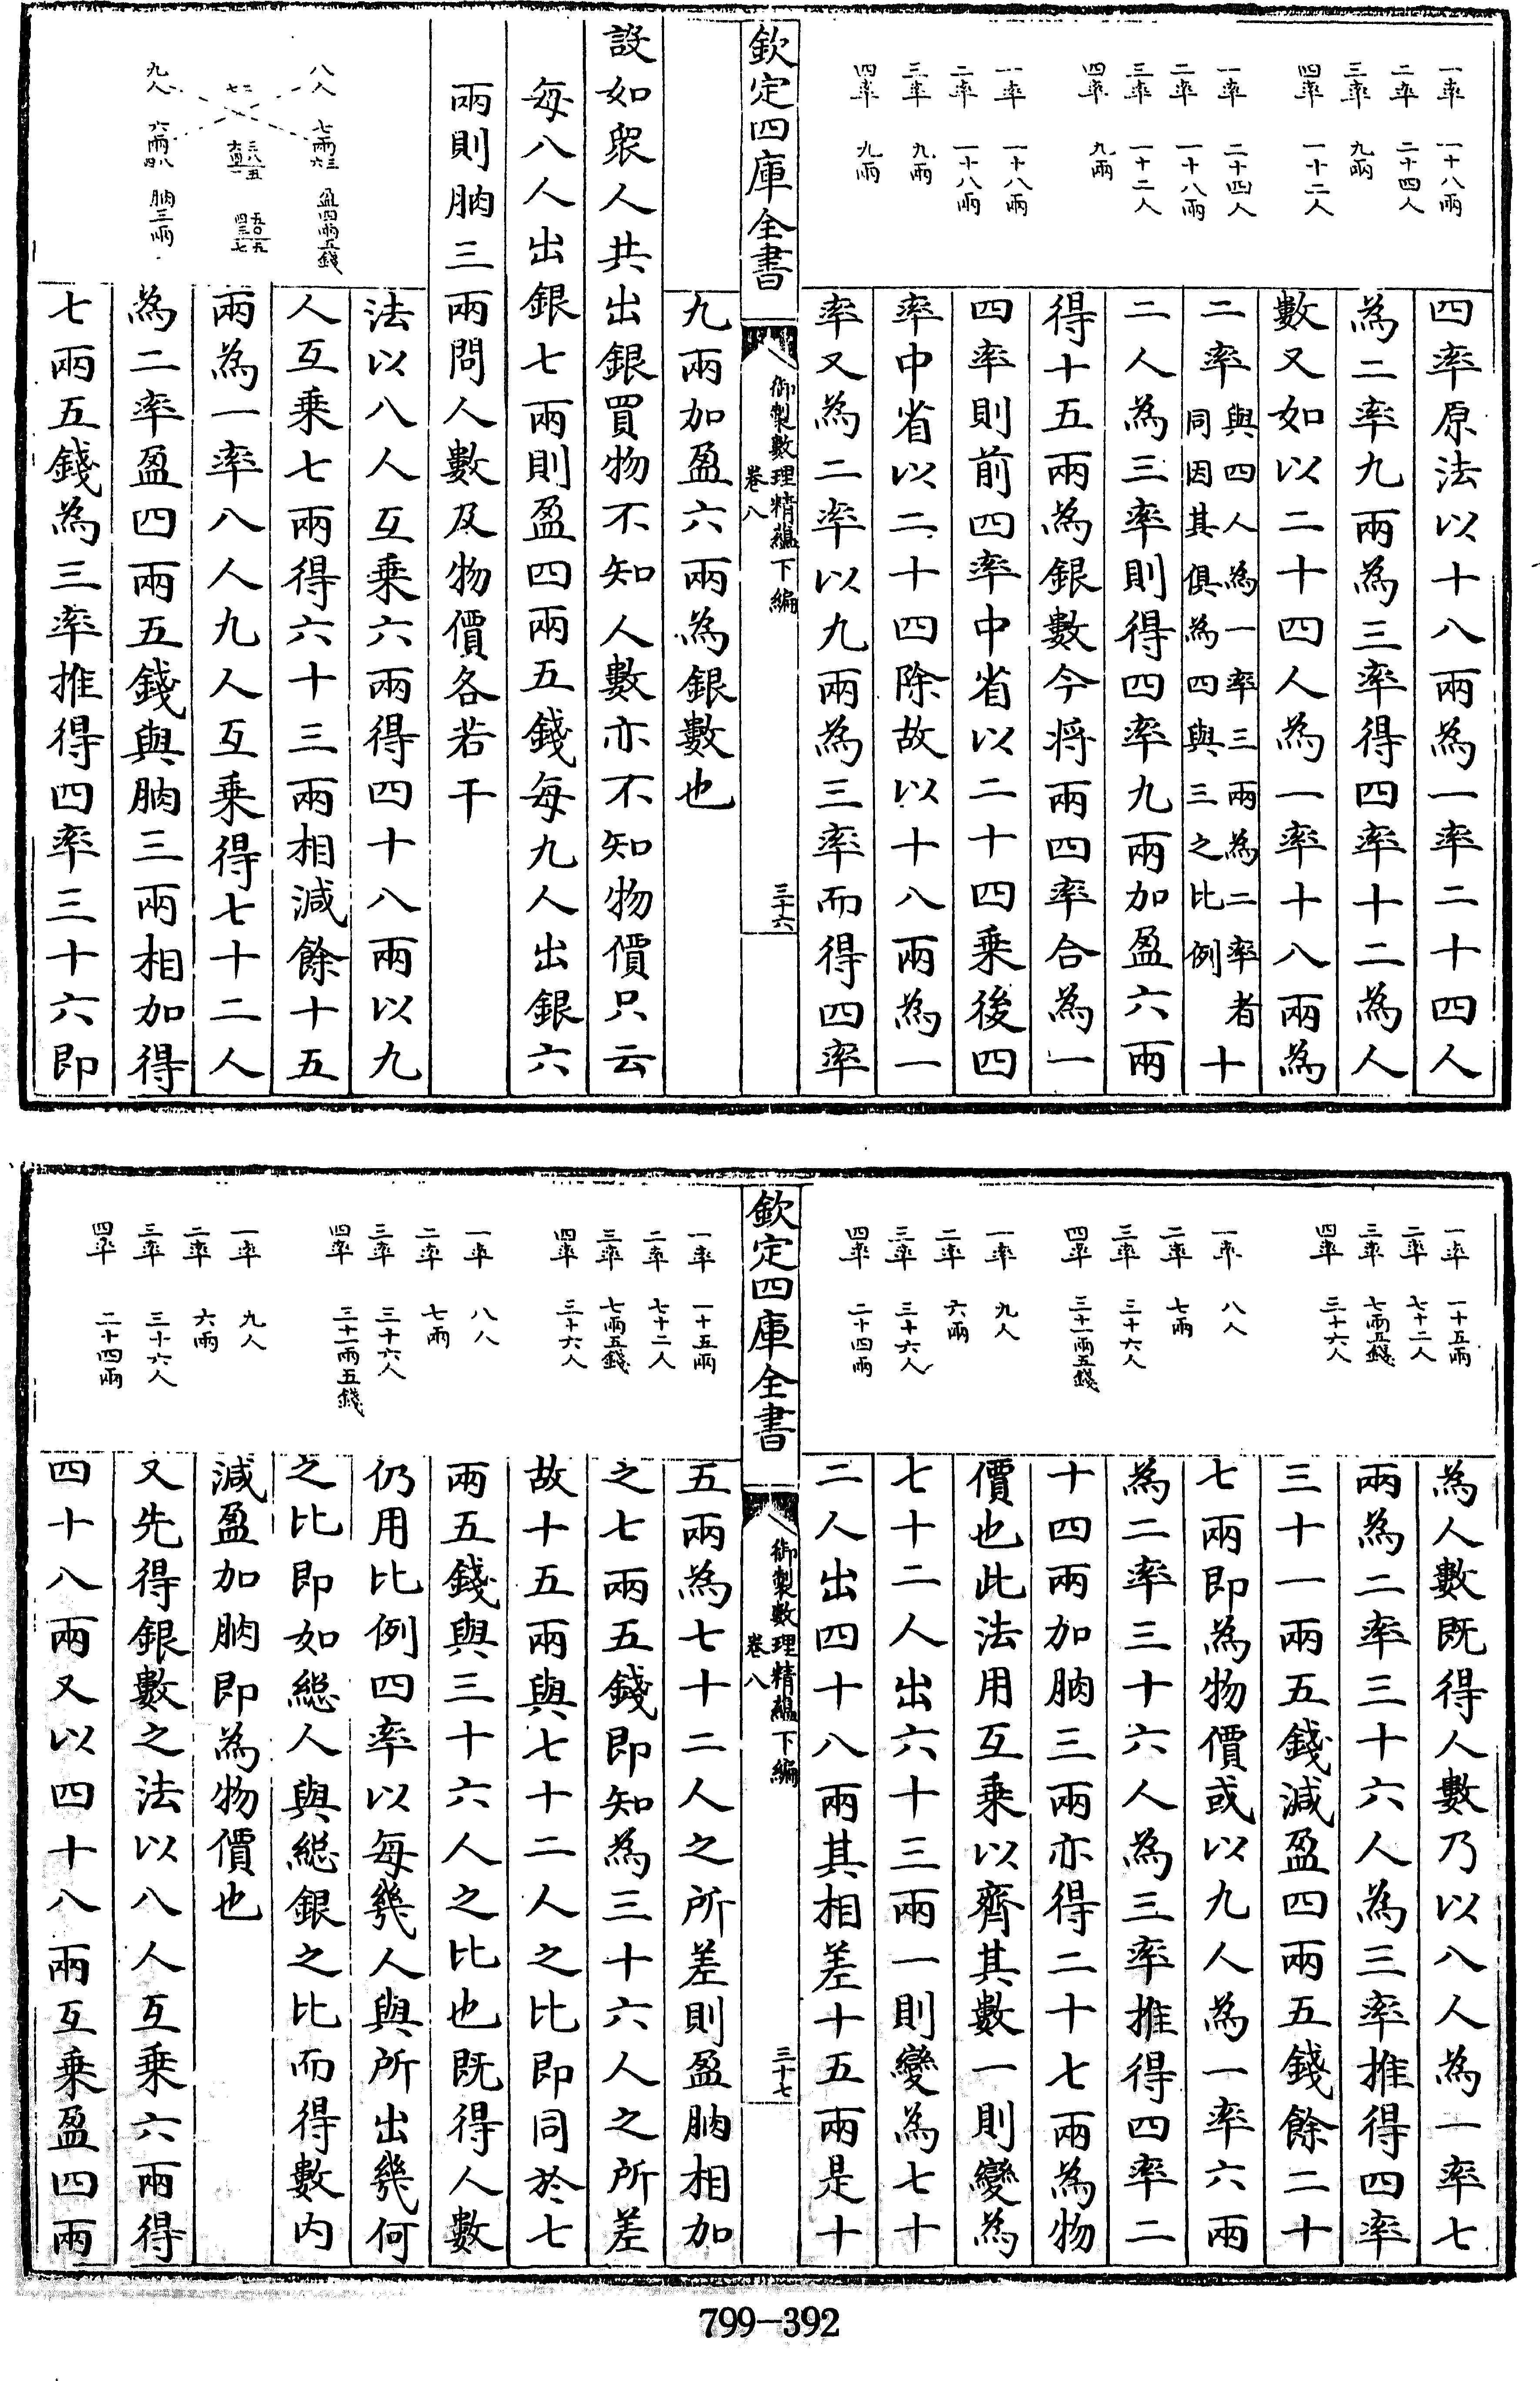 一率　一十八兩
二率　二十四人
三率　九兩
四率　一十二人
一率　二十四人
二率　一十八兩
三率　一十二人
四率　九兩
一率　一十八兩
二率　一十八兩
三率　九兩
四率　九兩
四率原法以十八兩為一率二十四人
為二率九兩為三率得四率十二為人
數又如以二十四人為一率十八兩為
二率與四人為一率三兩為二率者同因其俱為四與三之比例十
二人為三率則得四率九兩加盈六兩
得十五兩為銀數今将兩四率合為一
四率則前四率中省以二十四乘後四
率中省以二十四除故以十八兩為一
率又為二率以九兩為三率而得四率
欽定四庫全書
御製數理精蘊下編
卷八
三十六
九兩加盈六兩為銀數也
設如衆人共出銀買物不知人數亦不知物價只云
每八人出銀七兩則盈四兩五錢每九人出銀六
兩則朒三兩問人數及物價各若干
八人　七兩　六三　盈四兩五錢
七二
九人　六兩　四八　朒三兩
法以八人互乘六兩得四十八兩以九
人互乘七兩得六十三兩相減餘十五
兩為一率八人九人互乘得七十二人
為二率盈四兩五錢與朒三兩相加得
七兩五錢為三率推得四率三十六即
一率　一十五兩
二率　七十二人
三率　七兩五錢
四率　三十六人
一率　八人
二率　七兩
三率　三十六人
四率　三十一兩五錢
一率　九人
二率　六兩
三率　三十六人
四率　二十四兩
為人數既得人數乃以八人為一率七
兩為二率三十六人為三率推得四率
三十一兩五錢減盈四兩五錢餘二十
七兩即為物價或以九人為一率六兩
為二率三十六人為三率推得四率二
十四兩加朒三兩亦得二十七兩為物
價也此法用互乘以齊其數一則變為
七十二人出六十三兩一則變為七十
二人出四十八兩其相差十五兩是十
欽定四庫全書
御製數理精蘊下編
卷八
三十七
一率　一十五兩
二率　七十二人
三率　七兩五錢
四率　三十六人
一率　八人
二率　七兩
三率　三十六人
四率　三十一兩五錢
一率　九人
二率　六兩
三率　三十六人
四率　二十四兩
五兩為七十二人之所差則盈朒相加
之七兩五錢即知為三十六人之所差
故十五兩與七十二人之比即同於七
兩五錢與三十六人之比也既得人數
仍用比例四率以每幾人與所出幾何
之比即如總人與總銀之比而得數内
減盈加朒即為物價也
又先得銀數之法以八人互乘六兩得
四十八兩又以四十八兩互乘盈四兩
799-392